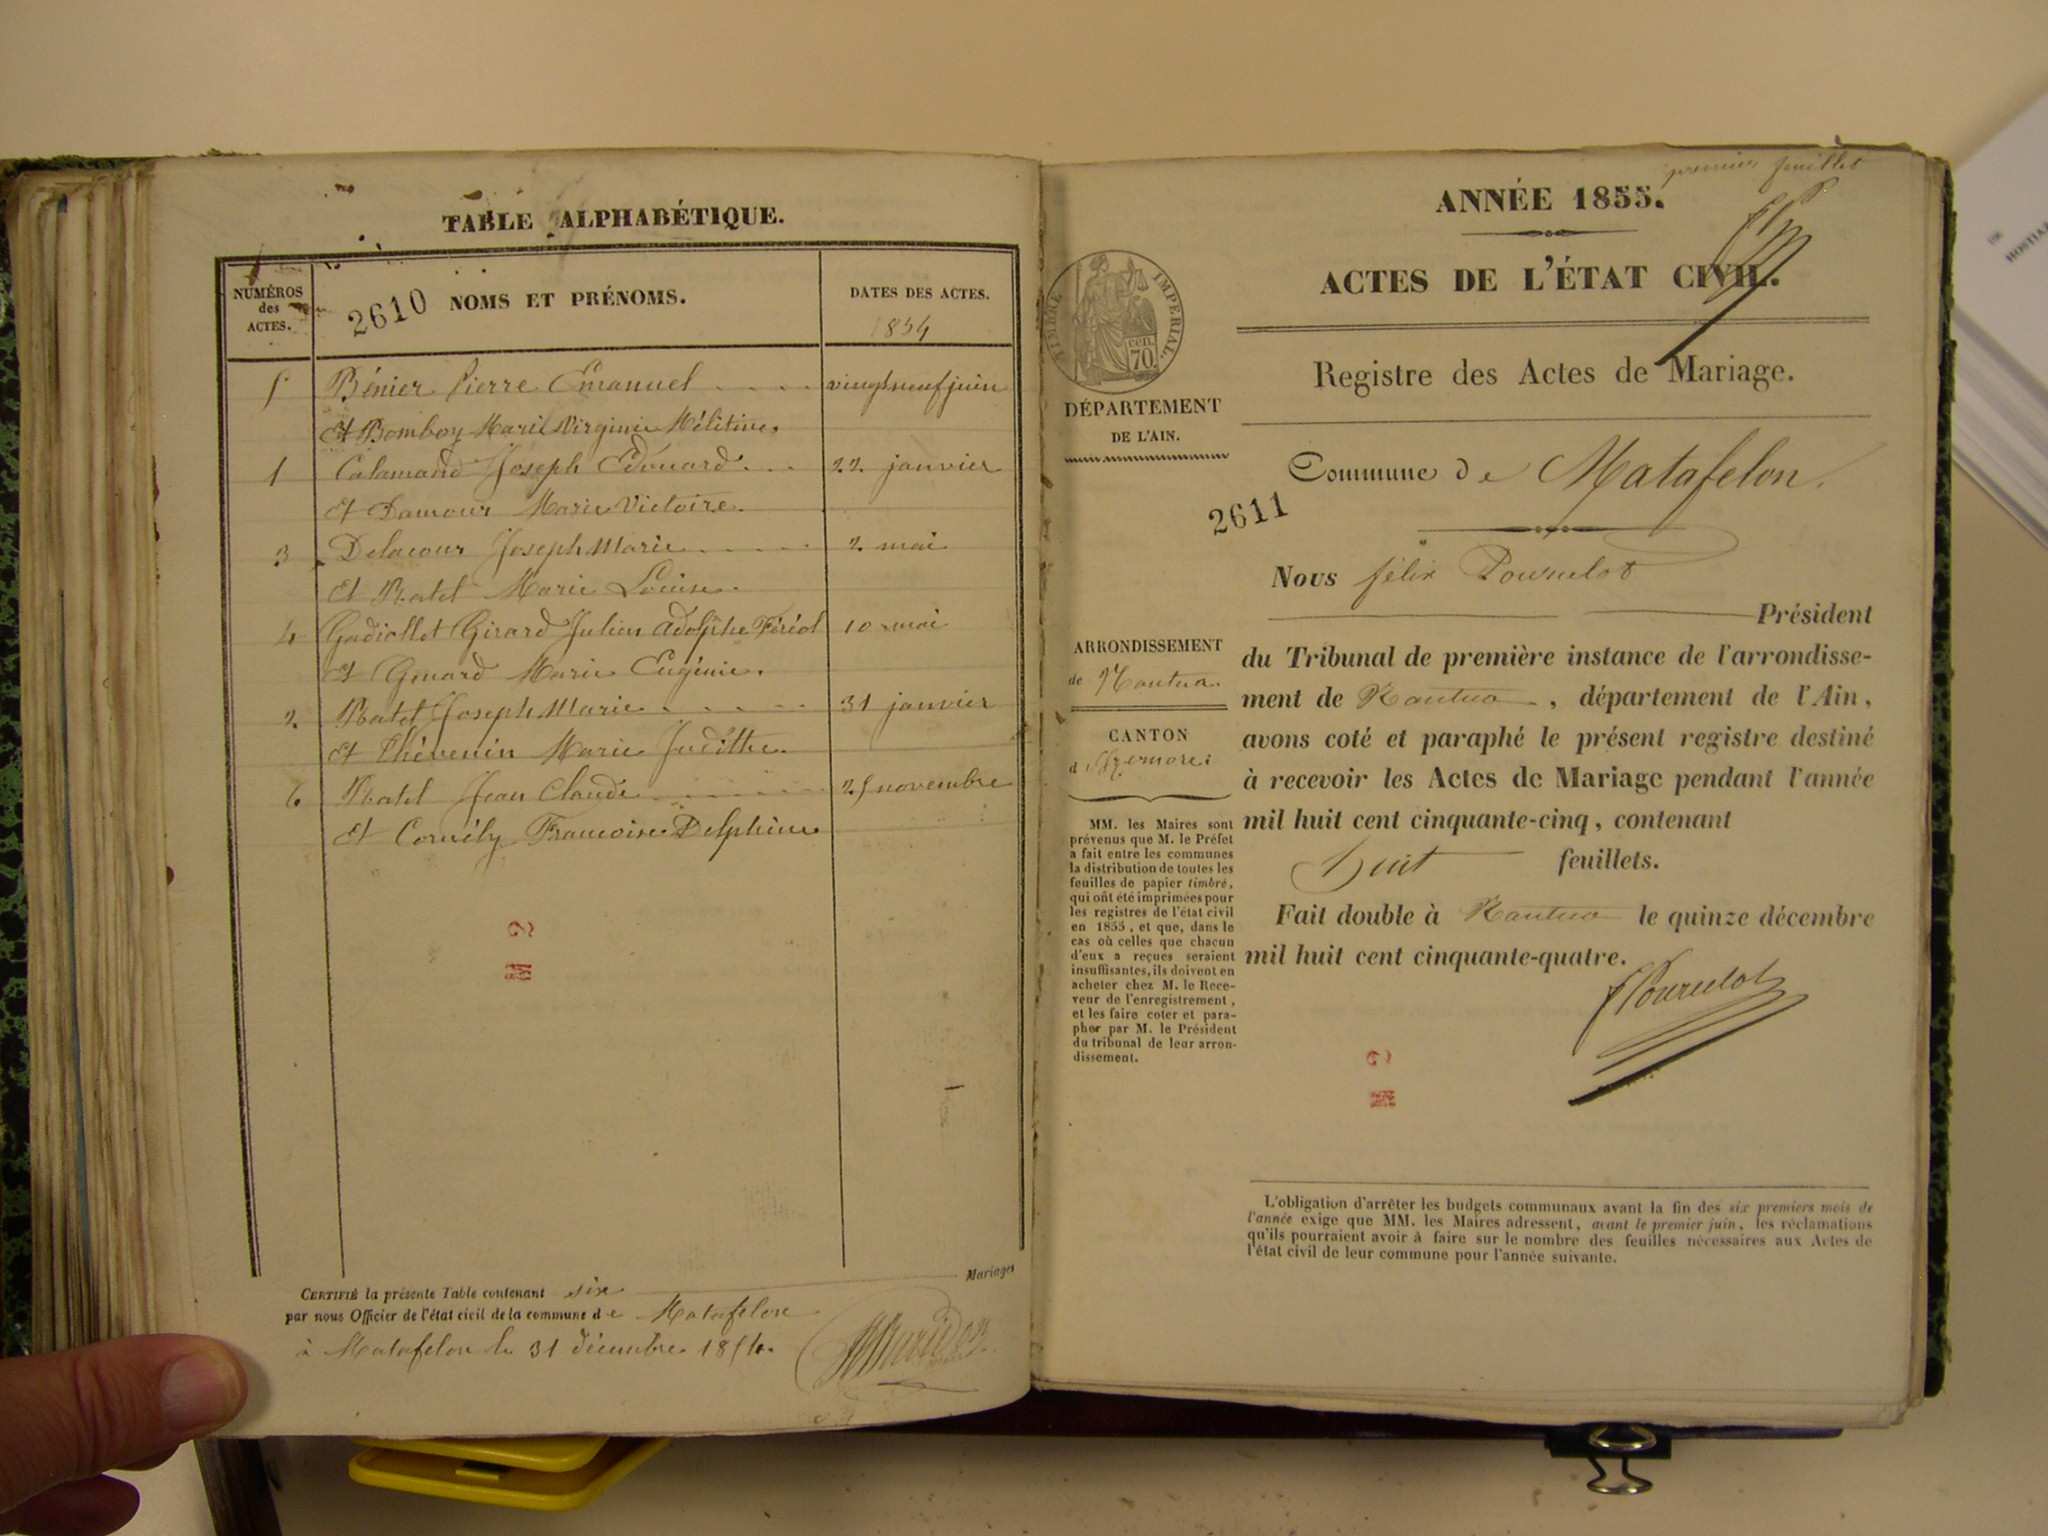 TABLE ALPHABÉTIQUE.
NUMÉROS des ACTES.
2610 NOMS ET PRÉNOMS.
DATES DES ACTES.
1854
5 Bénier Pierre Emanuel vingt neuf juin
Et Bomboy Marie Virginie Mélitine.
1 Calamand Joseph Edouard 22 janvier
Et Damour Marie Victoire.
3 Delacour Joseph Marie 2 mai
Et Ratel Marie Louise.
4 Gadiollet Girard Julien Adolphe Féréol 10 mai
Et Gmard Marie Eugénie.
2 Ratel Joseph Marie 31 janvier
Et Thévenin Marie Judithe.
6 Ratel Jean Claude 25 novembre
Et Cornély Francoise Delphine
CERTIFIÉ la présente Table contenant six Mariages
par nous Officier de l'état civil de la commune de Matafelon
à Matafelon le 31 décembre 1854.
premier feuillet
ANNÉE 1855.
ACTES DE L'ÉTAT CIVIL.
TIMBRE IMPERIAL.
70 cen.
Registre des Actes de Mariage.
DÉPARTEMENT
DE L'AIN.
Commune de Matafelon.
2611
Nous félix Pourcelot
Président
du Tribunal de première instance de l'arrondisse-
ment de Nantua, département de l'Ain,
avons coté et paraphé le présent registre destiné
à recevoir les Actes de Mariage pendant l'année
mil huit cent cinquante-cinq, contenant
huit feuillets.
Fait double à Nantua le quinze décembre
mil huit cent cinquante-quatre.
FPourcelot
ARRONDISSEMENT
de Nantua.
CANTON
d'Izernore
MM. les Maires sont
prévenus que M. le Préfet
a fait entre les communes
la distribution de toutes les
feuilles de papier timbré,
qui ont été imprimées pour
les registres de l'état civil
en 1855, et que, dans le
cas où celles que chacun
d'eux a reçues seraient
insuffisantes, ils doivent en
acheter chez M. le Rece-
veur de l'enregistrement,
et les faire coter et para-
pher par M. le Président
du tribunal de leur arron-
dissement.
L'obligation d'arrêter les budgets communaux avant la fin des six premiers mois de
l'année exige que MM. les Maires adressent, avant le premier juin, les réclamations
qu'ils pourraient avoir à faire sur le nombre des feuilles nécessaires aux Actes de
l'état civil de leur commune pour l'année suivante.